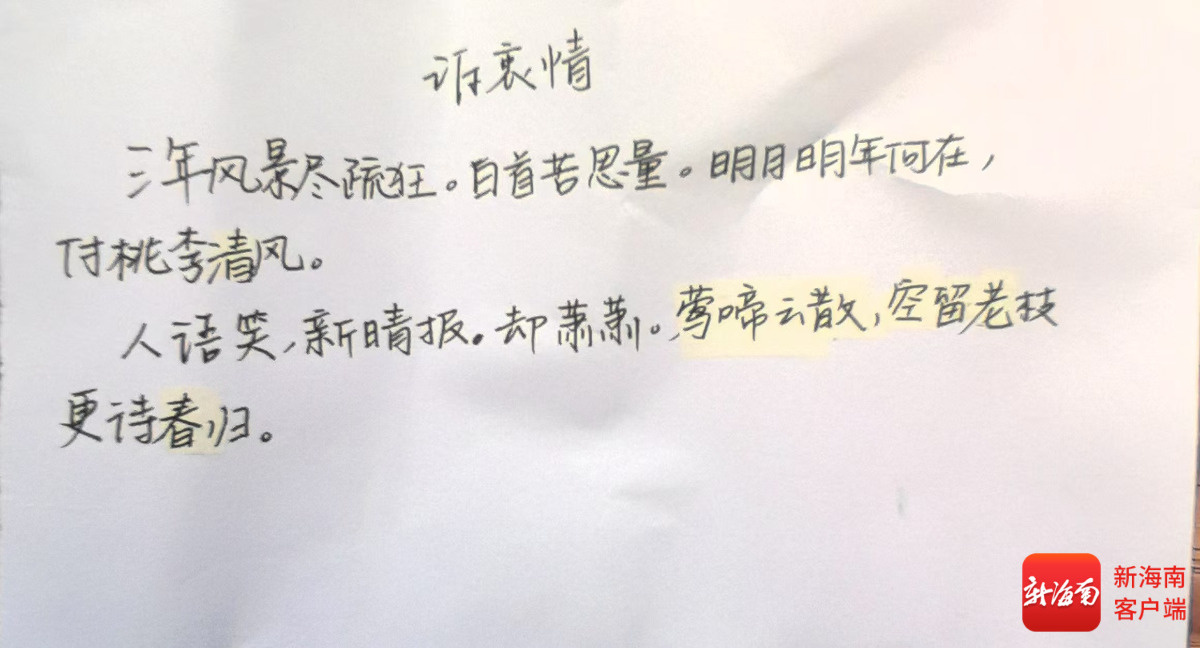 诉衷情
三年风景尽疏狂。白首苦思量。明月明年何在，
付桃李清风。
人语笑，新晴报。却萧萧。莺啼云散，空留老枝
更诗春归。
新海南
新海南
客户端